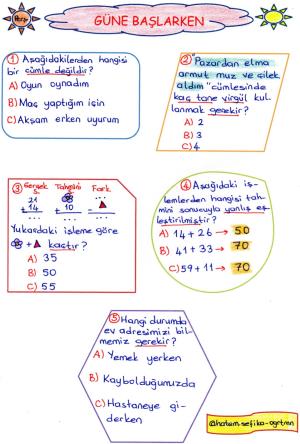 Perşe
GÜNE BAŞLARKEN
1 Aşağıdakilerden hangisi
bir cümle değildir?
A) Oyun oynadım
B) Maç yaptığım için
C) Akşam erken uyurum
2 "Pazardan elma
armut muz ve çilek
aldım" cümlesinde
kaç tane virgül kul-
lanmak gerekir?
A) 2
B) 3
C) 4
3 Gerçek Tahmini Fark
21
+ 14 + 10 -
... ... ...
Yukarıdaki işleme göre
+ kaçtır?
A) 35
B) 50
C) 55
4 Aşağıdaki iş-
lemlerden hangisi tah-
mini sonucuyla yanlış eş-
leştirilmiştir?
A) 14 + 26 → 50
B) 41 + 33 → 70
C) 59 + 11 → 70
5 Hangi durumda
ev adresimizi bil-
memiz gerekir?
A) Yemek yerken
B) Kaybolduğumuzda
C) Hastaneye gi-
derken